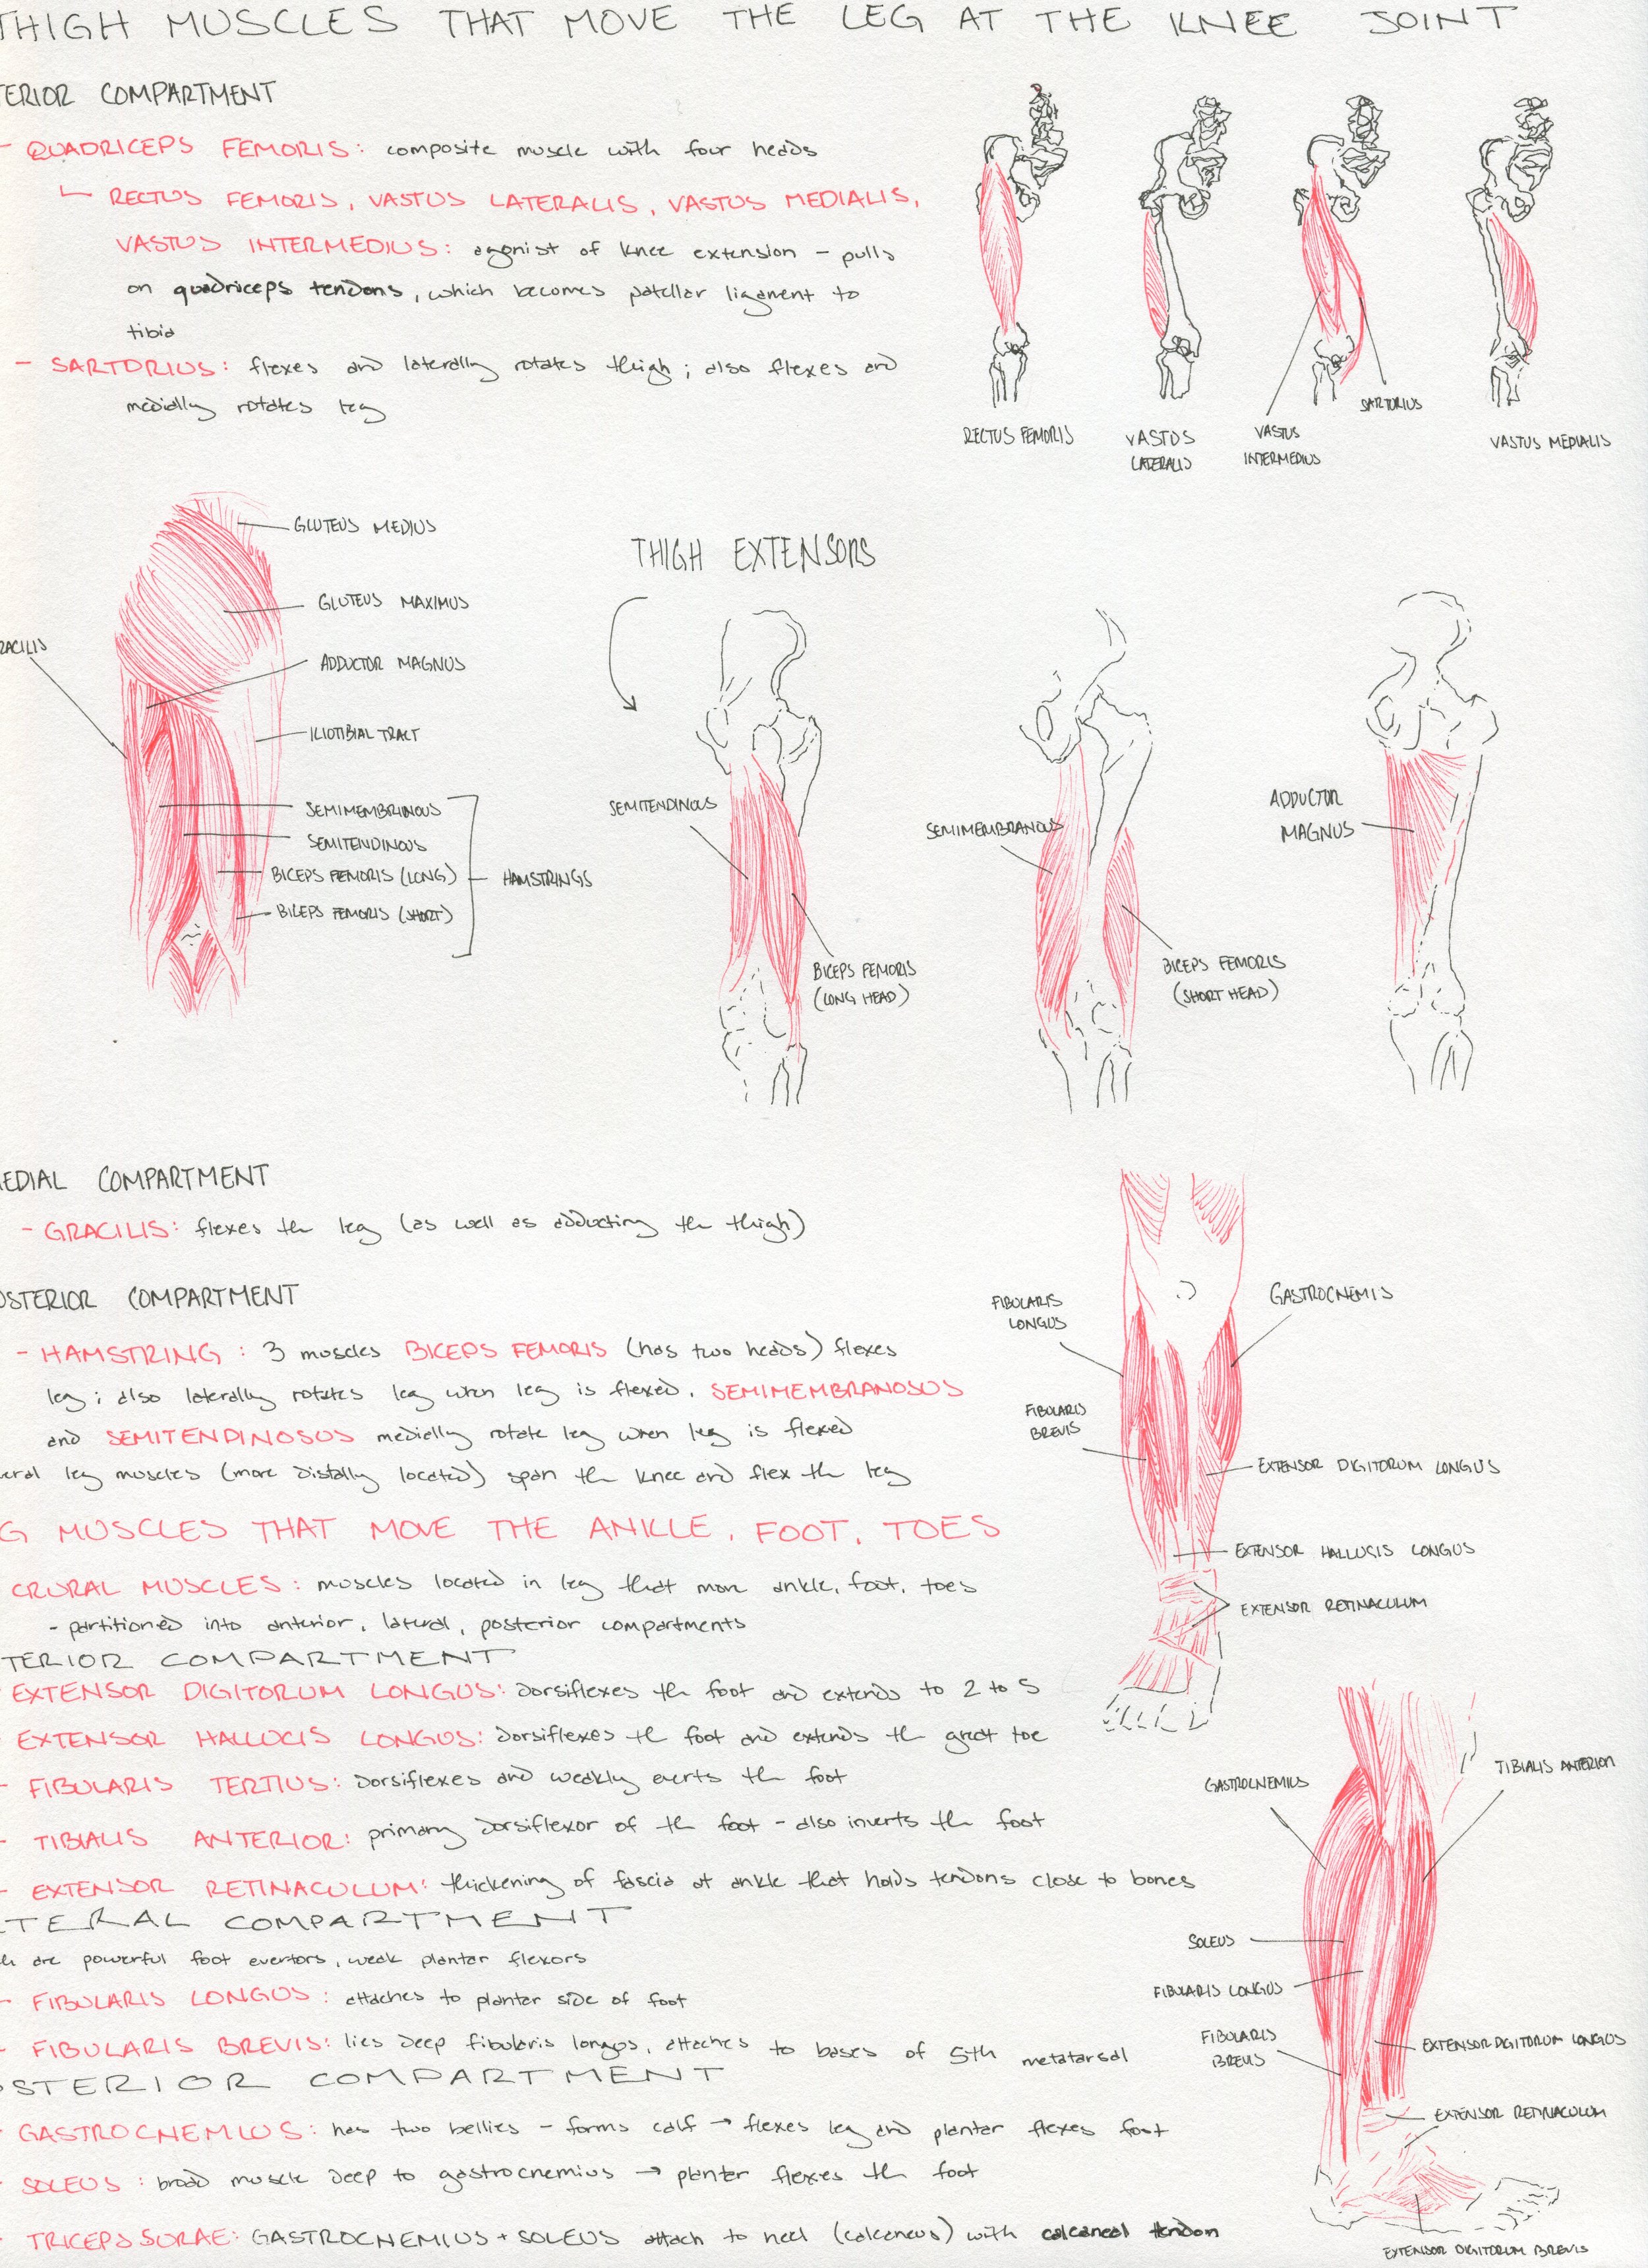 THIGH MUSCLES THAT MOVE THE LEG AT THE KNEE JOINT
TERIOR COMPARTMENT
- QUADRICEPS FEMORIS: composite muscle with four heads
RECTUS FEMORIS, VASTUS LATERALIS, VASTUS MEDIALIS,
VASTUS INTERMEDIUS: agonist of knee extension - pulls
on quadriceps tendons, which becomes patellar ligament to
tibia
- SARTORIUS: flexes and laterally rotates thigh; also flexes and
medially rotates leg
RECTUS FEMORIS
VASTUS
LATERALIS
VASTUS
INTERMEDIUS
SARTORIUS
VASTUS MEDIALIS
GLUTEUS MEDIUS
GLUTEUS MAXIMUS
RACILIS
ADDUCTOR MAGNUS
ILIOTIBIAL TRACT
SEMIMEMBRINOUS
SEMITENDINOUS
BICEPS FEMORIS (LONG)
BICEPS FEMORIS (SHORT)
HAMSTRINGS
THIGH EXTENSORS
SEMITENDINOUS
BICEPS FEMORIS
(LONG HEAD)
SEMIMEMBRANOUS
BICEPS FEMORIS
(SHORT HEAD)
ADDUCTOR
MAGNUS
EDIAL COMPARTMENT
- GRACILIS: flexes the leg (as well as adducting the thigh)
OSTERIOR COMPARTMENT
- HAMSTRING: 3 muscles BICEPS FEMORIS (has two heads) flexes
leg; also laterally rotates leg when leg is flexed. SEMIMEMBRANOSUS
and SEMITENDINOSUS medially rotate leg when leg is flexed
eral leg muscles (more distally located) span the knee and flex the leg
G MUSCLES THAT MOVE THE ANKLE, FOOT, TOES
CRURAL MUSCLES: muscles located in leg that move ankle, foot, toes
- partitioned into anterior, lateral, posterior compartments
TERIOR COMPARTMENT
EXTENSOR DIGITORUM LONGUS: dorsiflexes the foot and extends to 2 to 5
EXTENSOR HALLUCIS LONGUS: dorsiflexes the foot and extends the great toe
- FIBULARIS TERTIUS: dorsiflexes and weakly everts the foot
- TIBIALIS ANTERIOR: primary dorsiflexor of the foot - also inverts the foot
- EXTENSOR RETINACULUM: thickening of fascia at ankle that holds tendons close to bones
TERAL COMPARTMENT
are powerful foot evertors, weak plantar flexors
- FIBULARIS LONGUS: attaches to plantar side of foot
- FIBULARIS BREVIS: lies deep fibularis longus, attaches to bases of 5th metatarsal
OSTERIOR COMPARTMENT
- GASTROCNEMIUS: has two bellies - forms calf → flexes leg and plantar flexes foot
- SOLEUS: broad muscle deep to gastrocnemius → plantar flexes the foot
- TRICEPS SURAE: GASTROCNEMIUS + SOLEUS attach to heel (calcaneus) with calcaneal tendon
FIBULARIS
LONGUS
GASTROCNEMIS
FIBULARIS
BREVIS
EXTENSOR DIGITORUM LONGUS
EXTENSOR HALLUCIS LONGUS
EXTENSOR RETINACULUM
GASTROCNEMIUS
TIBIALIS ANTERIOR
SOLEUS
FIBULARIS LONGUS
FIBULARIS
BREVIS
EXTENSOR DIGITORUM LONGUS
EXTENSOR RETINACULUM
EXTENSOR DIGITORUM BREVIS